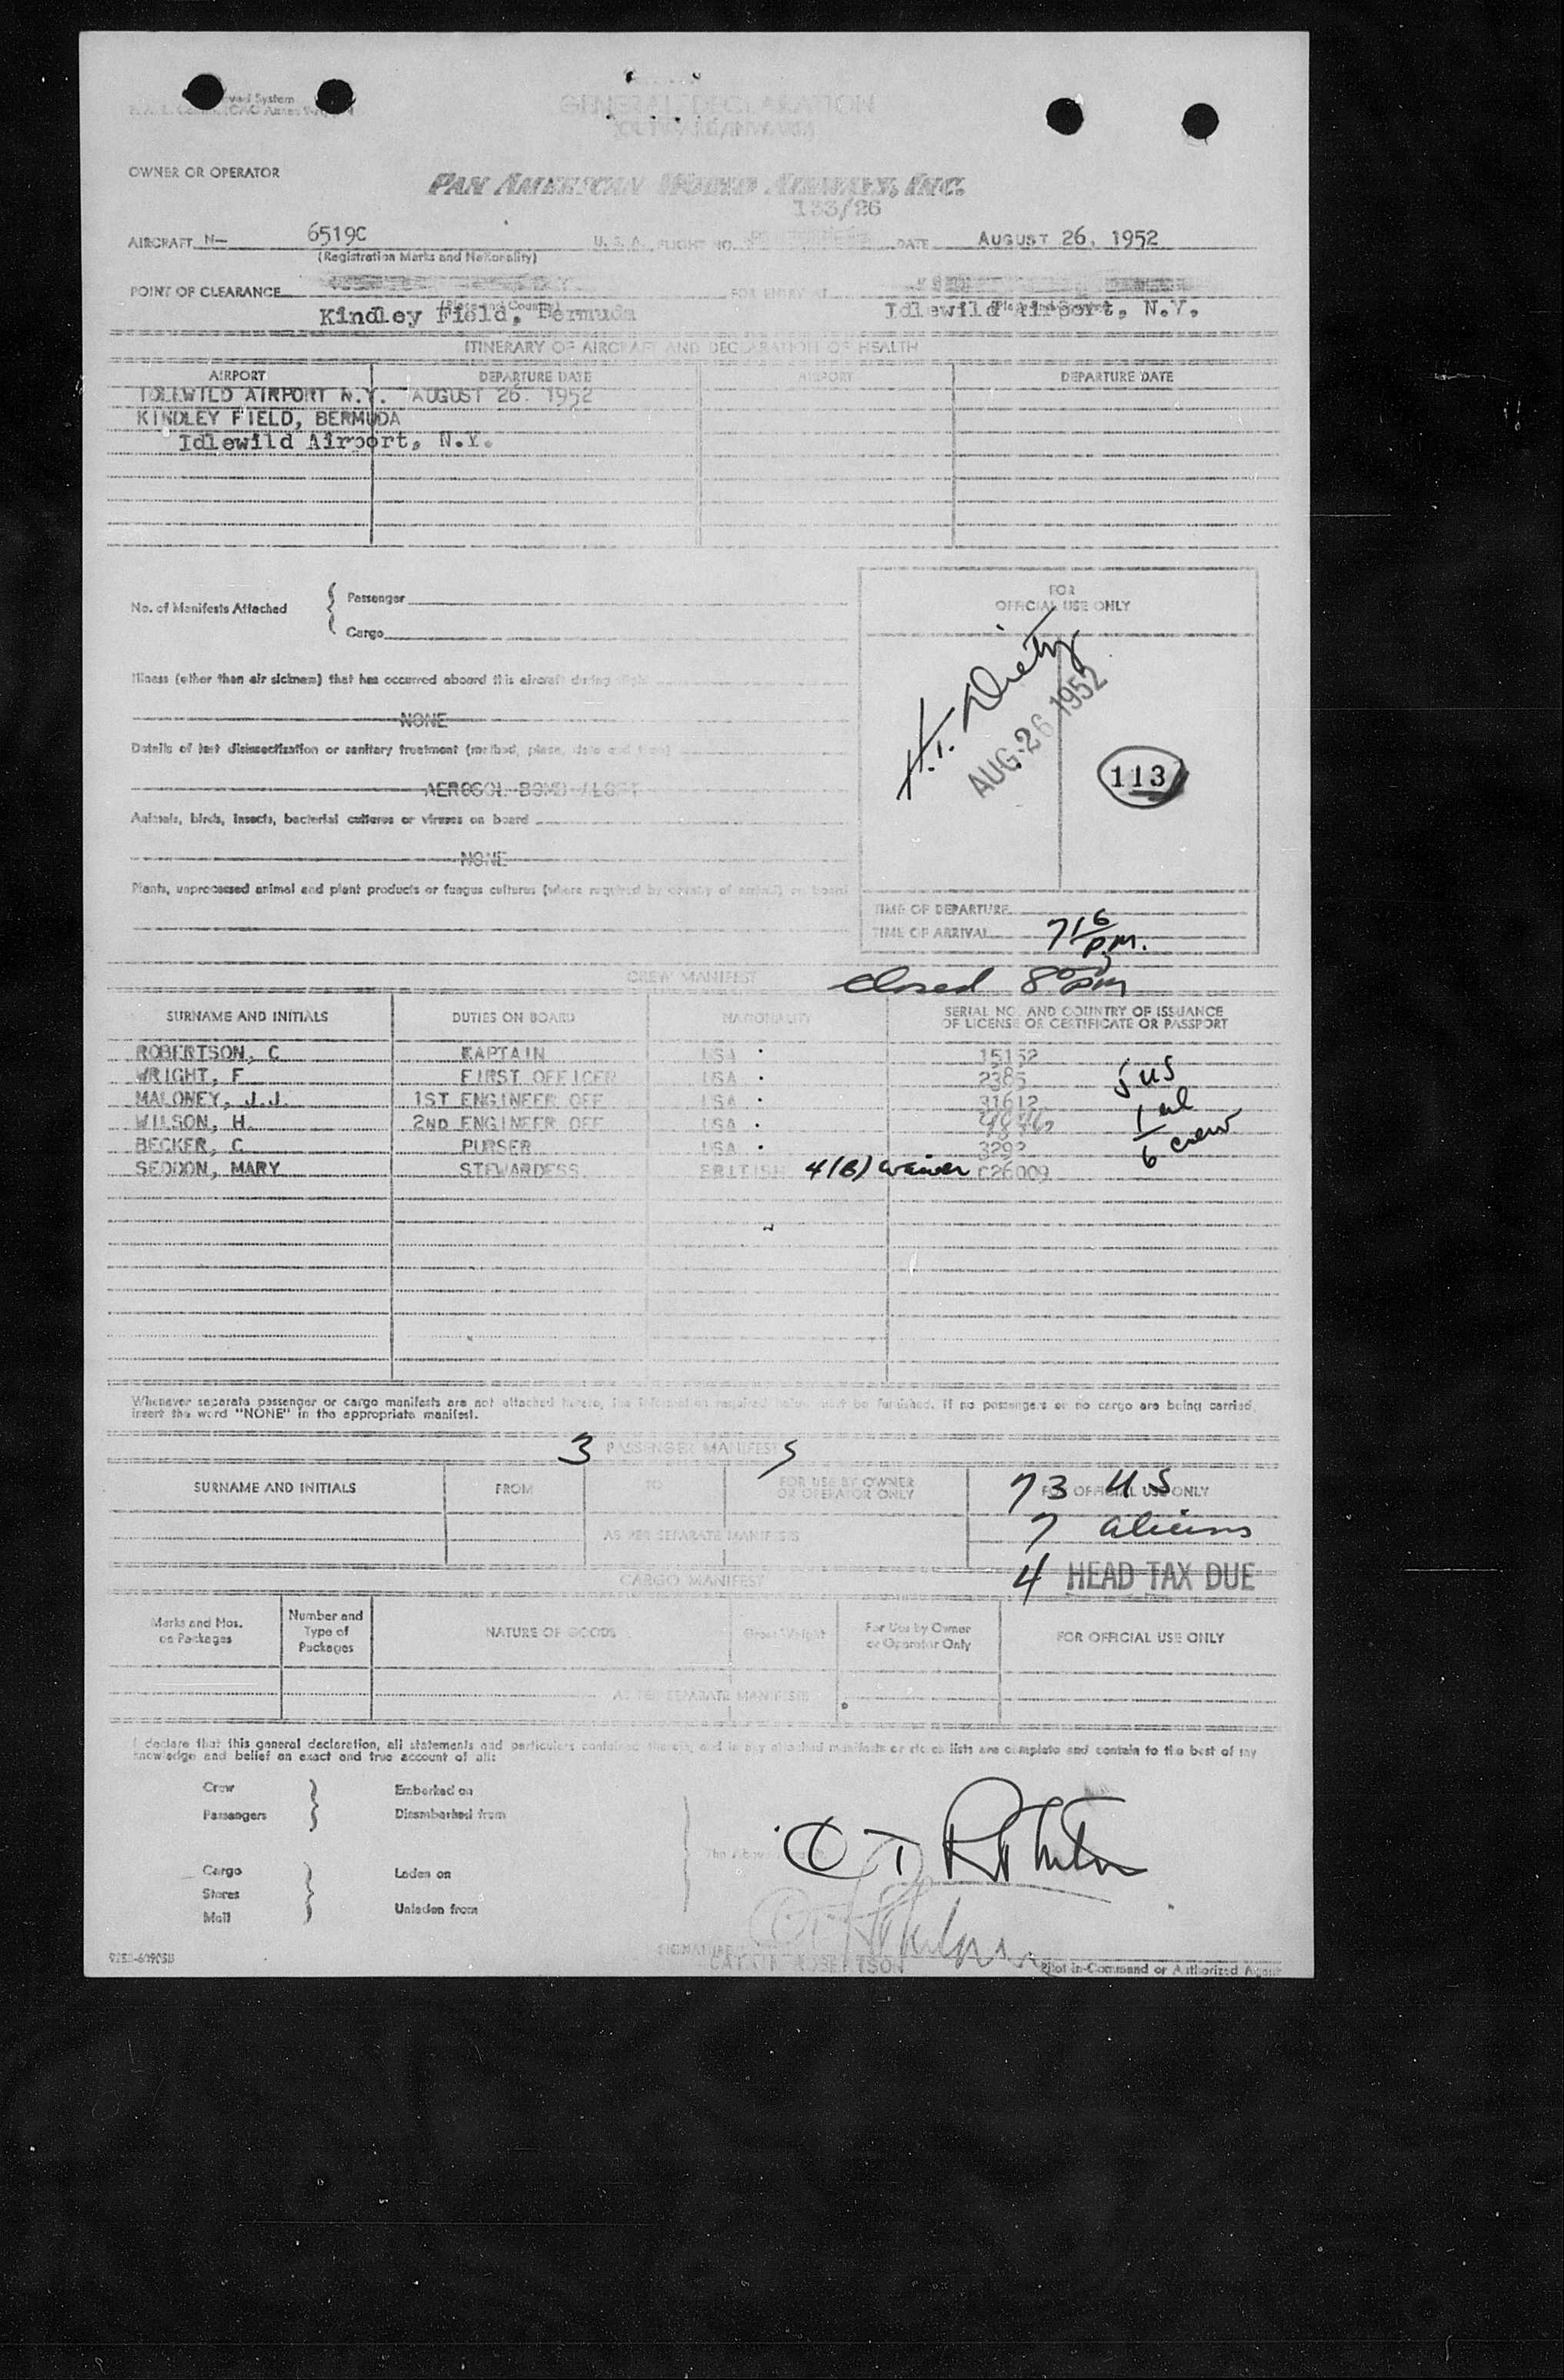 GENERAL DECLARATION
(OUTWARD/INWARD)
OWNER OR OPERATOR
PAN AMERICAN WORLD AIRWAYS, INC.
133/26
AIRCRAFT N— 6519C U.S.A. FLIGHT NO. DATE AUGUST 26, 1952
(Registration Marks and Nationality)
POINT OF CLEARANCE FOR ENTRY AT
(Place and Country)
Kindley Field, Bermuda Idlewild Airport, N.Y.
ITINERARY OF AIRCRAFT AND DECLARATION OF HEALTH
AIRPORT DEPARTURE DATE AIRPORT DEPARTURE DATE
IDLEWILD AIRPORT N.Y. AUGUST 26, 1952
KINDLEY FIELD, BERMUDA
Idlewild Airport, N.Y.
No. of Manifests Attached { Passenger
Cargo
Illness (other than air sickness) that has occurred aboard this aircraft during flight
NONE
Details of last disinsectization or sanitary treatment (method, place, date and time)
AEROSOL BOMB ALOFT
Animals, birds, insects, bacterial cultures or viruses on board
NONE
Plants, unprocessed animal and plant products or fungus cultures (where required by country of arrival) on board
FOR
OFFICIAL USE ONLY
H.T. Dietz
AUG 26 1952
113
TIME OF DEPARTURE
TIME OF ARRIVAL 7 16 pm.
CREW MANIFEST closed 8 00 pm
SURNAME AND INITIALS DUTIES ON BOARD NATIONALITY SERIAL NO. AND COUNTRY OF ISSUANCE
OF LICENSE OR CERTIFICATE OR PASSPORT
ROBERTSON, C KAPTAIN USA 15152
WRIGHT, F FIRST OFFICER USA 2385 5 US
MALONEY, J.J. 1ST ENGINEER OFF USA 31612 1 al
WILSON, H. 2ND ENGINEER OFF USA
BECKER, C PURSER USA 3292 6 crew
SEDDON, MARY STEWARDESS BRITISH 4(B) waiver C26009
Whenever separate passenger or cargo manifests are not attached hereto, the information required below must be furnished. If no passengers or no cargo are being carried,
insert the word "NONE" in the appropriate manifest.
3 PASSENGER MANIFEST S
SURNAME AND INITIALS FROM TO FOR USE BY OWNER
OR OPERATOR ONLY FOR OFFICIAL USE ONLY
73 US
AS PER SEPARATE MANIFESTS 7 aliens
CARGO MANIFEST 4 HEAD TAX DUE
Marks and Nos.
on Packages Number and
Type of
Packages NATURE OF GOODS Gross Weight For Use by Owner
or Operator Only FOR OFFICIAL USE ONLY
AS PER SEPARATE MANIFESTS
I declare that this general declaration, all statements and particulars contained therein, and in any attached manifests or stores lists are complete and contain to the best of my
knowledge and belief an exact and true account of all:
Crew } Embarked on
Passengers Disembarked from
Cargo } Laden on
Stores
Mail Unladen from
SIGNATURE
CAPTAIN ROBERTSON Pilot in-Command or Authorized Agent